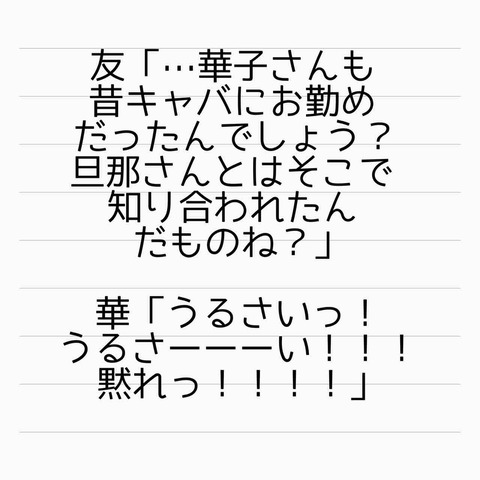 友「…華子さんも
昔キャバにお勤め
だったんでしょう？
旦那さんとはそこで
知り合われたん
だものね？」
華「うるさいっ！
うるさーーーい！！！
黙れっ！！！！」